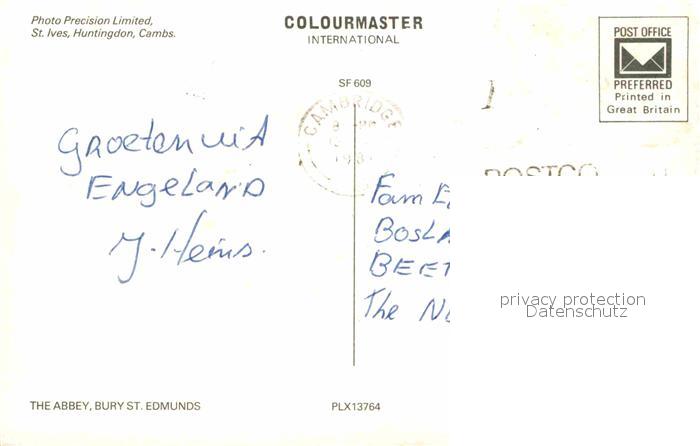 Photo Precision Limited,
St. Ives, Huntingdon, Cambs.
COLOURMASTER
INTERNATIONAL
POST OFFICE
PREFERRED
Printed in
Great Britain
SF 609
CAMBRIDGE
Groeten uit
Engeland
J. Heins.
Fam
BEET
The
privacy protection
Datenschutz
THE ABBEY, BURY ST. EDMUNDS
PLX13764